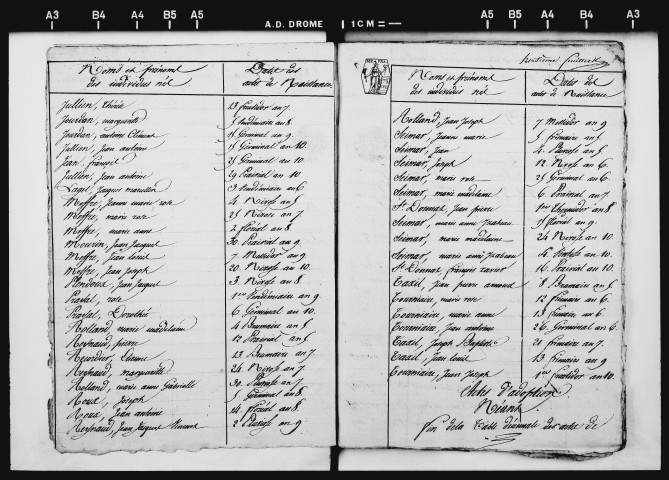 A3 B4 A4 B5 A5 A.D. DROME 1 CM = A5 B5 A4 B4 A3
Noms et prénoms des individus né
Dates des actes de Naissance
Jullien, 13 fructidor an 7
Jourdan, marguerite 5 Vendémiaire an 8
Jourdan, antoine Clement Germinal an 9
Jullien, Jean antoine Germinal an 10
Jean, françois 25 Germinal an 10
Jullien, Jean antoine 29 Prairial an 10
Lager, Jacques marcellin 3 Vendémiaire an 6
Meffre, Jeanne marie rose 4 Nivose an 5
Meffre, marie rose 25 Nivose an 7
Meffre, marie anne 2 floréal an 8
Mouvin, Jean Jacques 30 Prairial an 9
Meffre, Jean Louis 7 Messidor an 9
Meffre, Jean Joseph 20 Nivose an 10
Jean Jacques 3 Nivose an 8
rose 1er Vendémiaire an 9
Dorothée 6 Germinal an 10
Rolland, marie madelaine 4 Brumaire an 5
Reynaud, pierre 12 Prairial an 5
Etienne 13 Brumaire an 7
Reynaud, marguerite 26 Nivose an 7
Rolland, marie anne Gabrielle 30 Pluviose an 7
Roux, Joseph 5 Germinal an 8
Roux, Jean antoine 14 floréal an 8
Reynaud, Jean Jacques Vincent 2 Pluviose an 9
huitième feuillet
Noms et prénoms des individus né
Dates des actes de Naissance
Rolland, Jean Joseph 7 Messidor an 9
Seimar, Jeanne marie 5 frimaire an 5
Seimar, Jean 4 an 5
Seimar, Joseph 12 Nivose an 6
Seimar, marie rose 25 Germinal an 6
Seimar, marie madelaine 6 Prairial an 7
St Donnat, Jean pierre 1er Thermidor an 8
Seimar, marie anne floréal an 9
Seimar, marie madelaine 24 Nivose an 10
Seimar, marie anne 4 Ventose an 10
St Donnat, françois Xavier 16 Prairial an 10
Taxil, Jean pierre armand 8 Brumaire an 5
Tourniaire, marie rose 12 frimaire an 6
Tourniaire, marie anne 13 frimaire an 6
Tourniaire, Jean antoine 26 Germinal an 6
Taxil, Joseph Baptiste 21 frimaire an 7
Taxil, Jean Louis 13 frimaire an 9
Tourniaire, Jean Joseph 1er fructidor an 10
Actes d'adoption
Néant
fin de la Table décennale des actes de